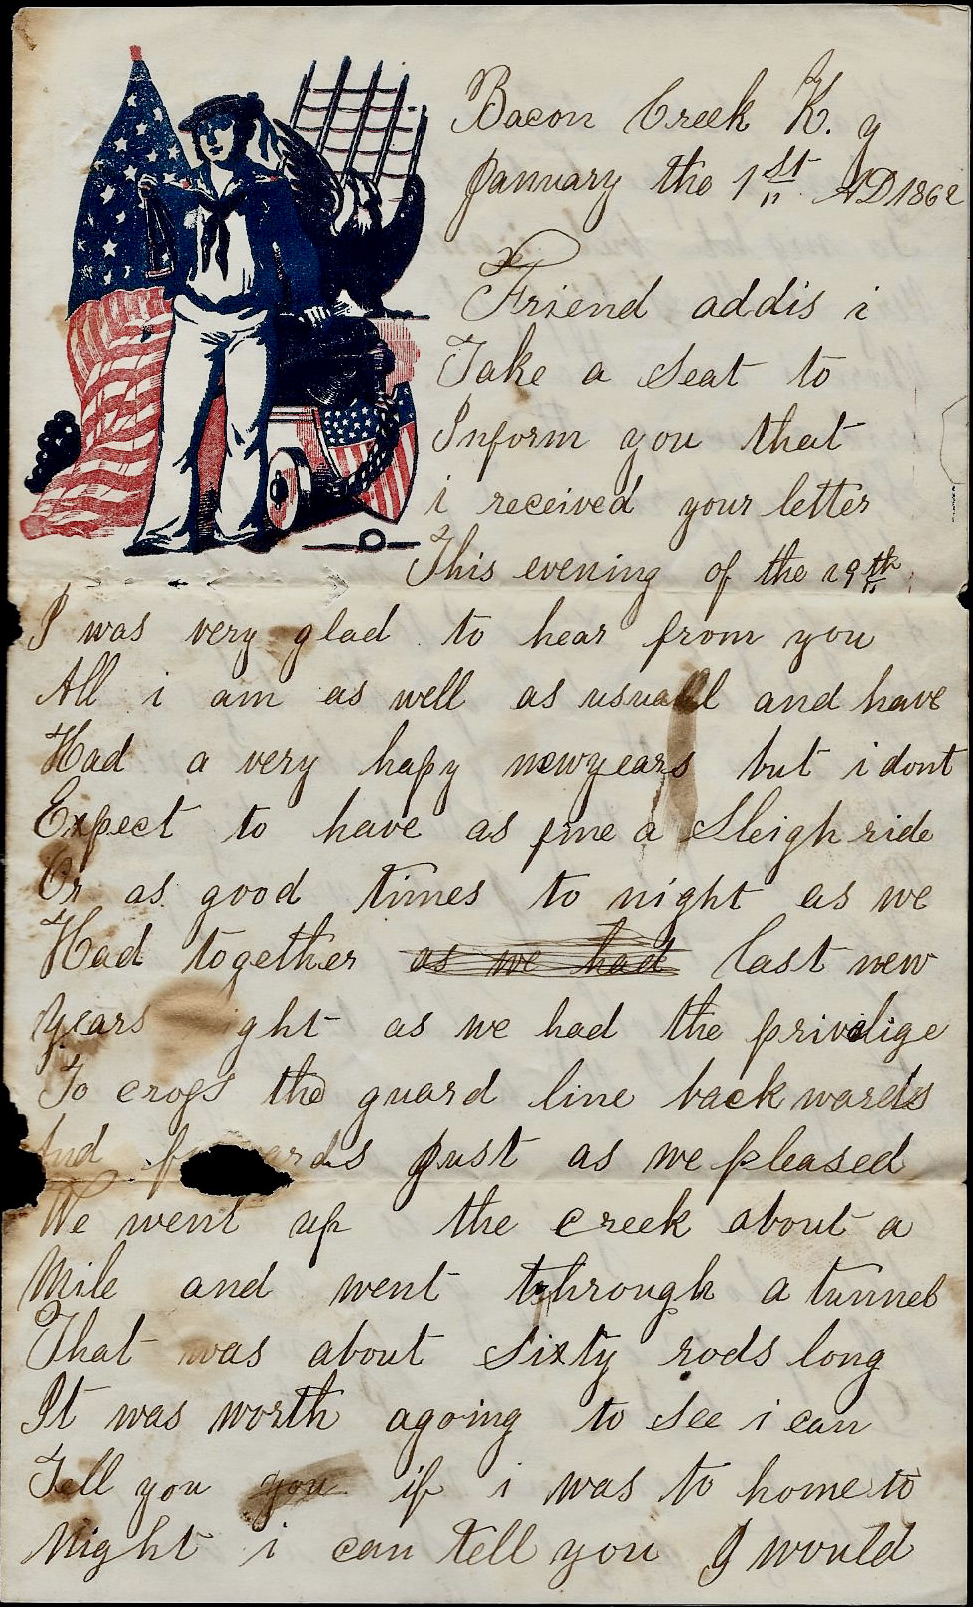 Bacon Creek K. y
January the 1st AD 1862
Friend addis i
Take a seat to
Inform you that
i received your letter
This evening of the 29th
I was very glad to hear from you
All i am as well as usuall and have
Had a very hapy newyears but i dont
Expect to have as fine a Sleigh ride
Or as good times to night as we
Had together as we had last new
years ght as we had the privelige
To cross the guard line back wards
And ards Just as we pleased
We went up the creek about a
Mile and went through a tunnel
That was about Sixty rods long
It was worth agoing to see i can
Tell you you if i was to home to
Night i can tell you I would